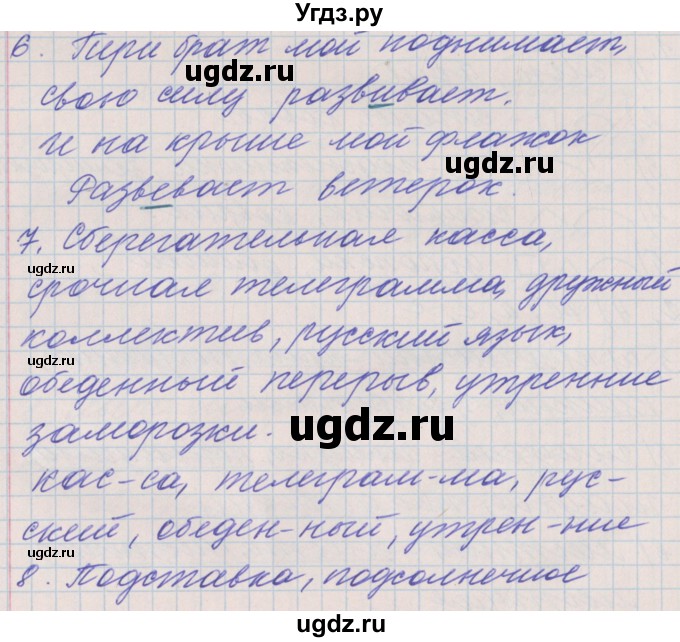 Угдз.ру
6. Гири брат мой поднимает,
ugdz.ru
свою силу развивает.
И на крыше мой флажок
ugdz.ru
Развевает ветерок.
7. Сберегательная касса,
ugdz.ru
срочная телеграмма, дружный
коллектив, русский язык,
ugdz.ru
обеденный перерыв, утренние
заморозки.
ugdz.ru
кас-са, телеграм-ма, рус-
ский, обеден-ный, утрен-ние
ugdz.ru
8. Подставка, подсолнечное
ugdz.ru